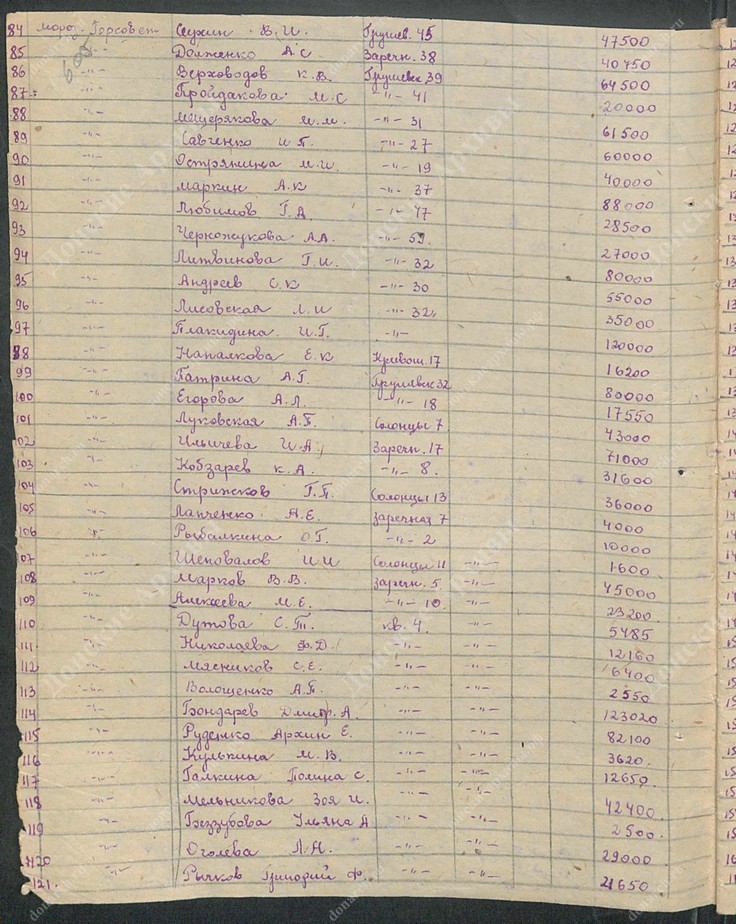 84 Мороз. Горсовет Сухин В.И. Грушев. 45 47500
85 -"- Долженко А С Заречн. 38 40750
86 -"- Верховодов К.В. Грушевск 39 64500
87 -"- Пройдакова М.С -"- 41 20000
88 -"- Мещерякова М.М. -"- 31 61500
89 -"- Савченко И П. -"- 27 60000
90 -"- Острянина М.И. -"- 19 40000
91 -"- Маркин А.К -"- 37 88000
92 -"- Любимов Г.Д. -"- 47 28500
93 Черножукова А.А. -"- 59. 27000
94 -"- Литвинова Г.И. -"- 32 80000
95 -"- Андреев С.К -"- 30 55000
96 -"- Лисовская Л.И -"- 32 35000
97 -"- Плакидина И.Г. -"- 120000
98 -"- Напалкова Е.К Кривош. 17 16200
99 -"- Патрина А.Г. Грушевск 32 80000
100 -"- Егорова А.Л. -"- 18 17550
101 -"- Луковская А.П. Солонцы 7 43000
102 -"- Ильичева И.А. Заречн. 17 71000
103 -"- Кобзарев К.А. -"- 8. 31600
104 -"- Стрижков Г.П. Солонцы 13 36000
105 -"- Лапченко А.Е. Заречная 7 4000
106 -"- Рыбалкина О.Г. -"- 2 10000
107 -"- Шеповалов И.И Солонцы 11 -"- 1600
108 -"- Марков В.В. Заречн. 5 -"- 45000
109 -"- Алексеева М.Е. -"- 10. -"- 23200
110 -"- Дутова С.Т. кв. 4. -"- 5485
111 -"- Николаева Ф.Д. -"- -"- 12160
112 -"- Мясников С.Е. -"- -"- 6400
113 -"- Волощенко А.П. -"- -"- 2550
114 -"- Бондарев Дмитр. А. -"- -"- 123020
115 -"- Руденко Архип Е. -"- -"- 82100
116 -"- Кулькина М.В. -"- -"- 3620.
117 -"- Галкина Полина С. -"- -"- 12650.
118 -"- Мельникова Зоя И. -"- 42400.
119 -"- Беззубова Ульяна А -"- -"- 2500.
120 -"- Оголева Л.Н. -"- -"- 29000
121. -"- Рычков Григорий Ф. -"- -"- 21650